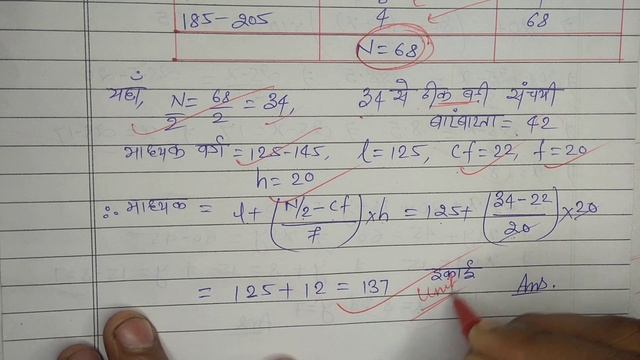 185-205 4 68
N = 68
यहाँ, N/2 = 68/2 = 34, 34 से ठीक बड़ी संचयी
बारंबारता = 42
माध्यक वर्ग = 125-145, l = 125, cf = 22, f = 20
h = 20
∴ माध्यक = l + (N/2 - cf / f) × h = 125 + (34 - 22 / 20) × 20
= 125 + 12 = 137 इकाई Ans.
Unit